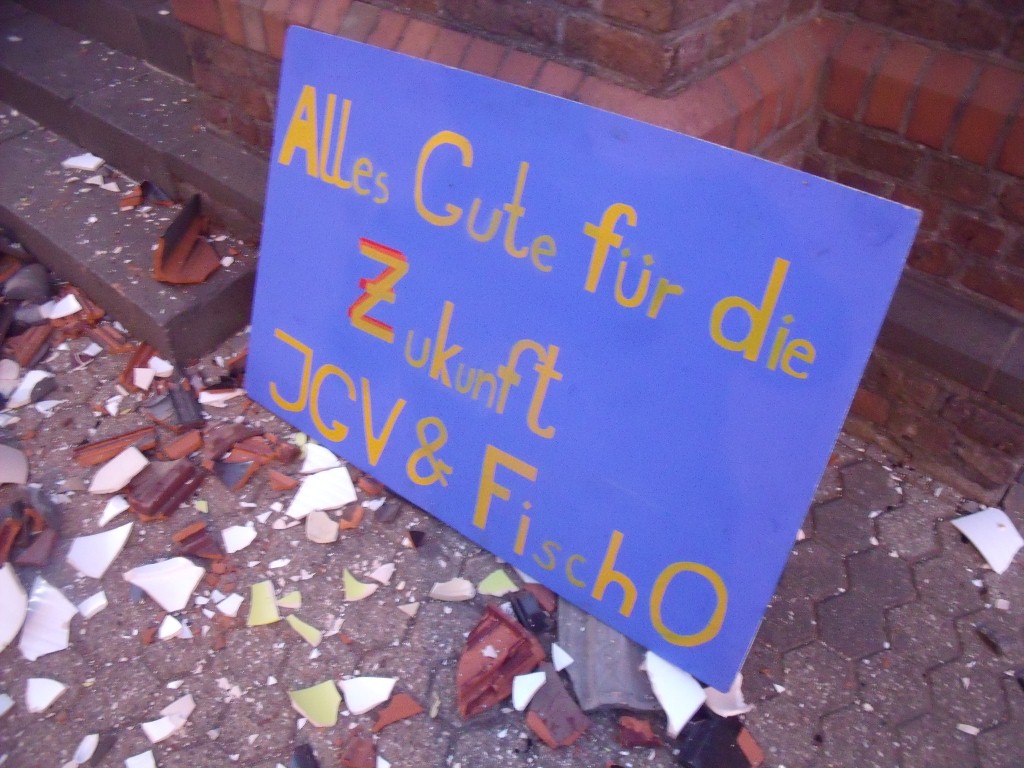 Alles Gute für die
Zukunft
JGV & FischO